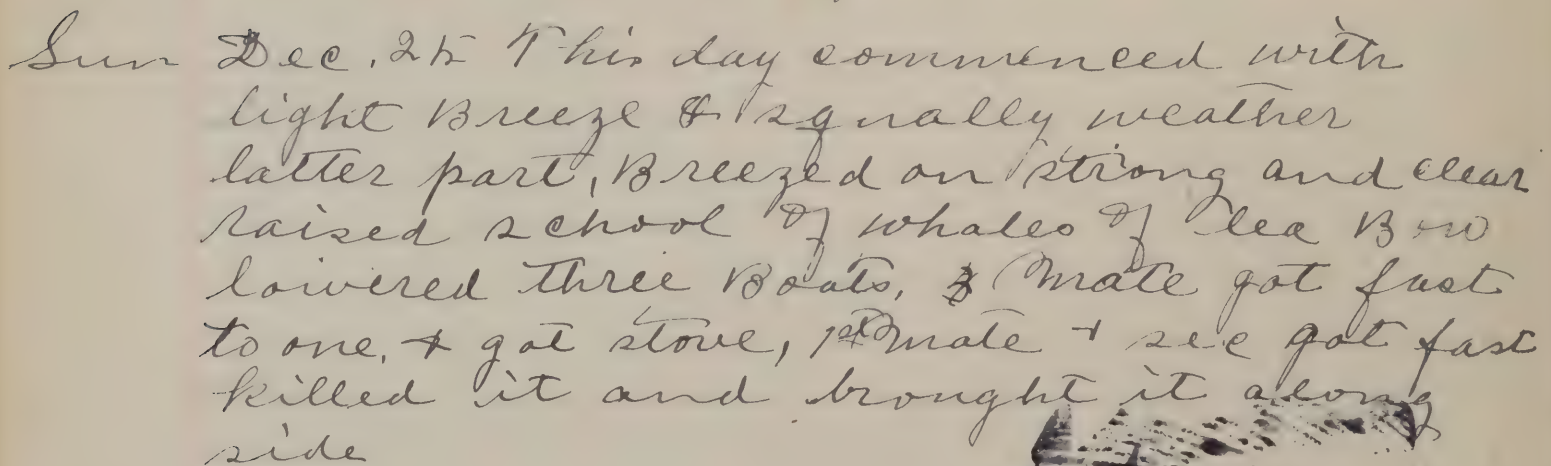 Sun Dec. 25 This day commenced with
light Breeze & squally weather
latter part, Breezed on strong and clear
raised school of whales of lea Bow
lowered three Boats, 3 Mate got fast
to one, + got stove, 1st Mate + sec got fast
killed it and brought it along
side